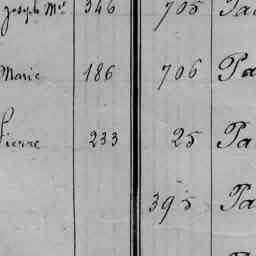 Joseph Mel 346 705 Pa
Marie 186 706 Pa
Pierre 233 25 Pa
395 Pa